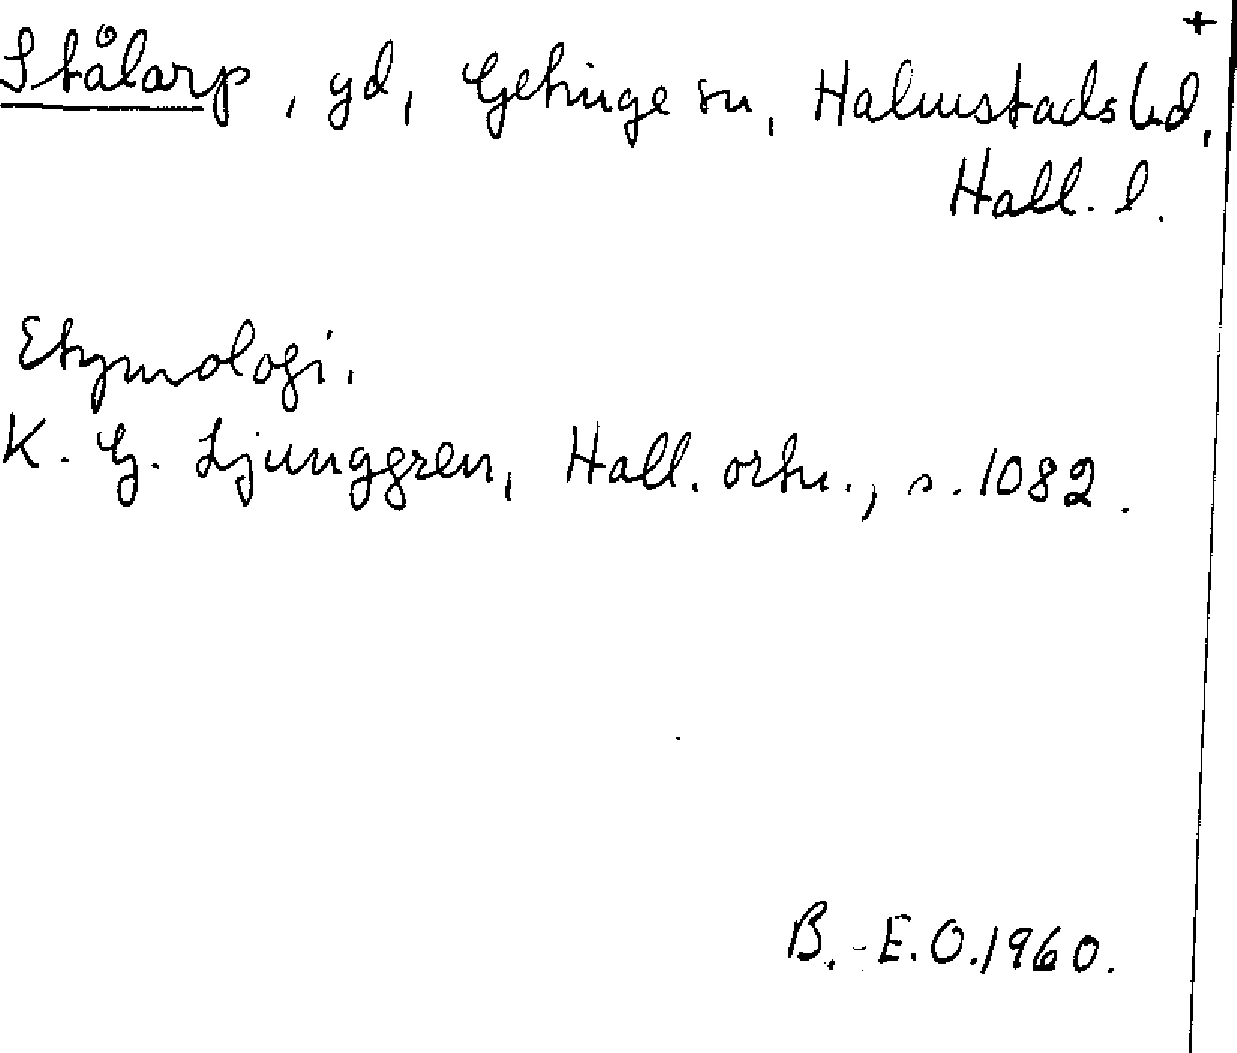 +
Stålarp, gd, Getinge sn, Halmstads hd,
Hall. l.
Etymologi.
K. G. Ljunggren, Hall. ortn., s. 1082.
B.-E.O.1960.